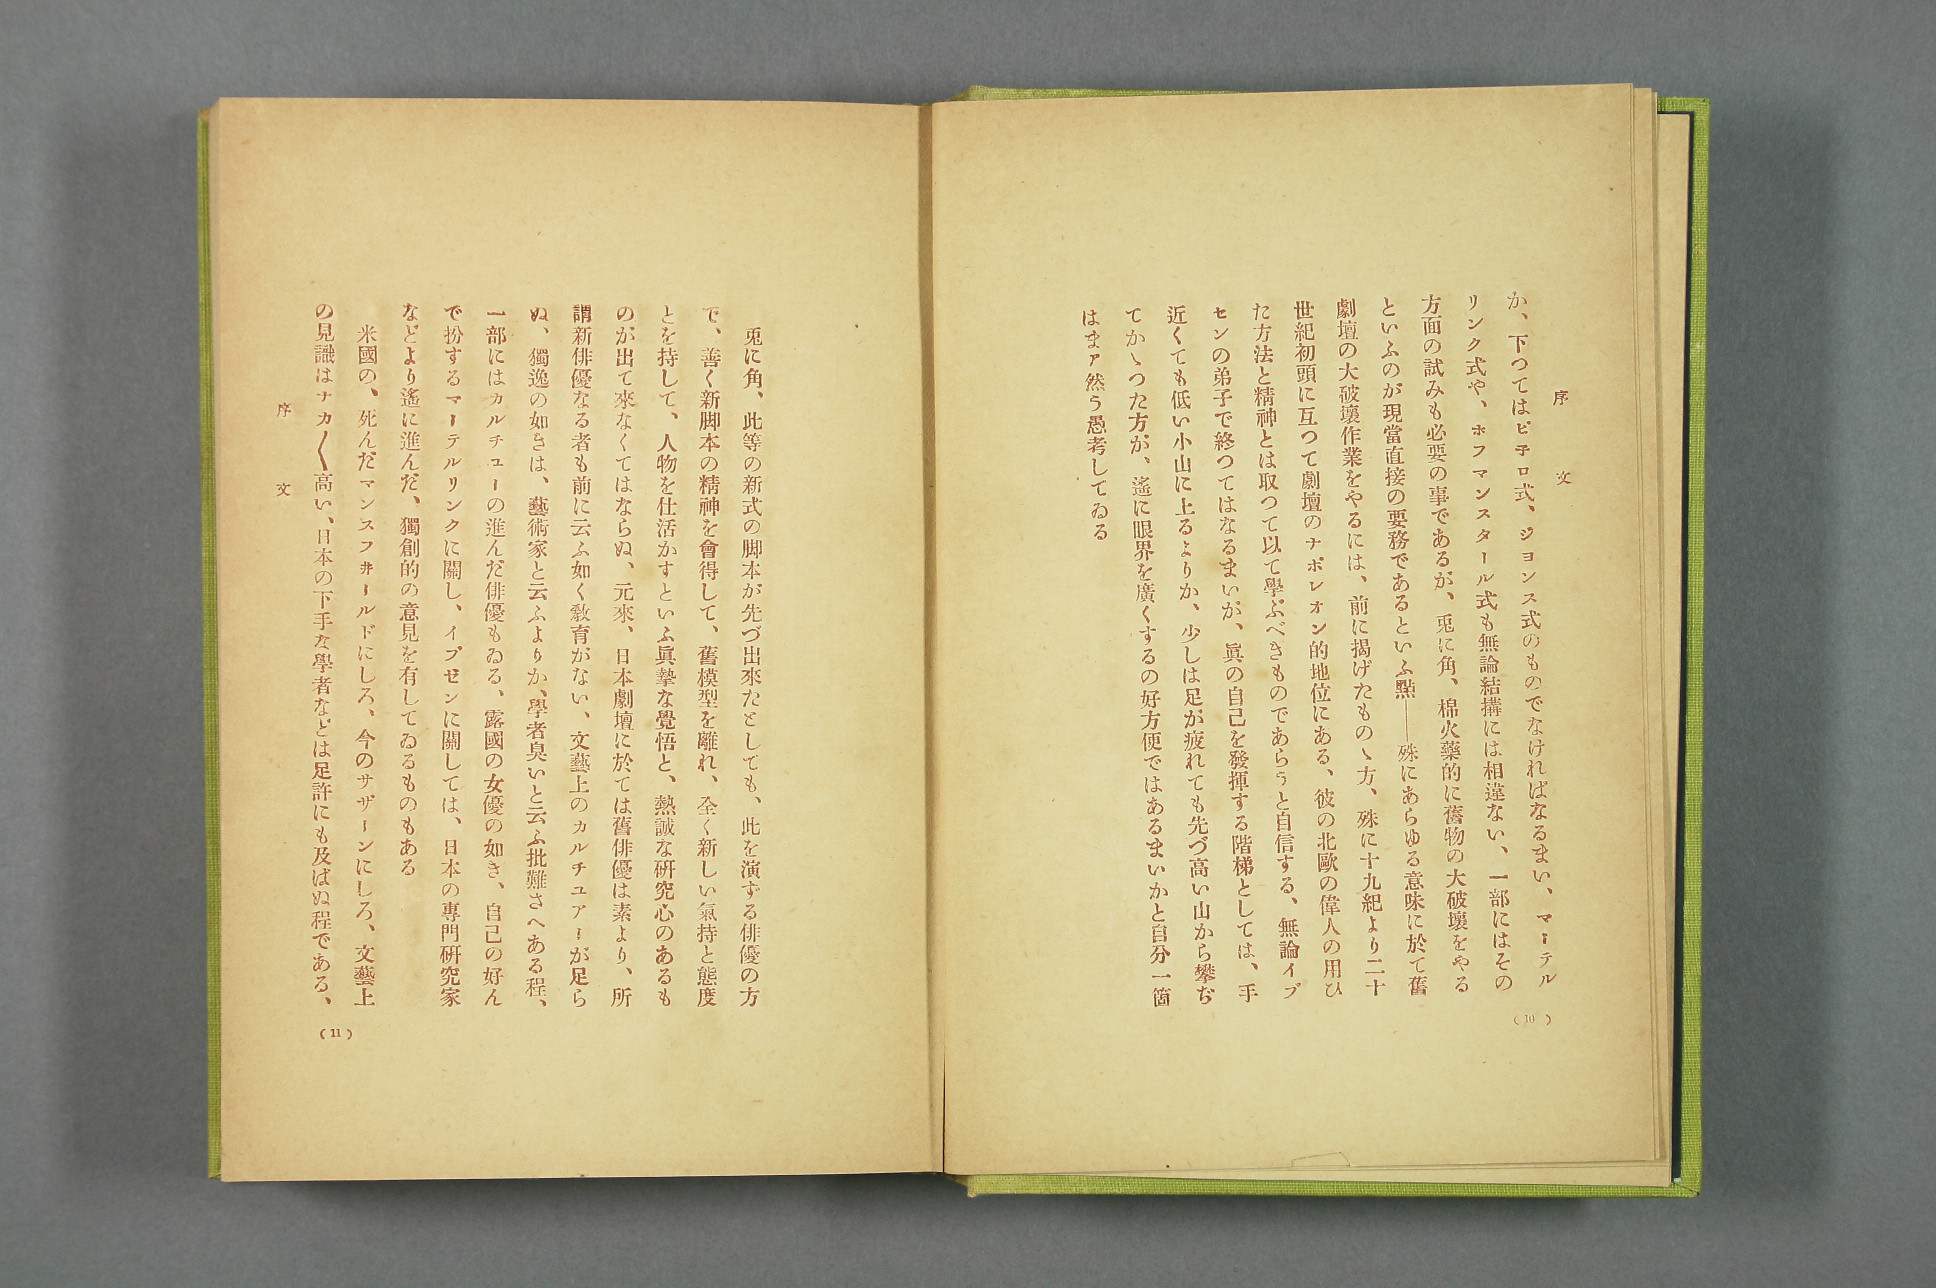 序文
か、下つてはピネロ式、ジヨンス式のものでなければなるまい、マーテル
リンク式や、ホフマンスタール式も無論結搆には相違ない、一部にはその
方面の試みも必要の事であるが、兎に角、棉火藥的に舊物の大破壞をやる
といふのが現當直接の要務であるといふ點――殊にあらゆる意味に於て舊
劇壇の大破壞作業をやるには、前に揭げたものゝ方、殊に十九紀より二十
世紀初頭に亙つて劇壇のナポレオン的地位にある、彼の北歐の偉人の用ひ
た方法と精神とは取つて以て學ぶべきものであらうと自信する、無論イブ
センの弟子で終つてはなるまいが、眞の自己を發揮する階梯としては、手
近くても低い小山に上るよりか、少しは足が疲れても先づ高い山から攀ぢ
てかゝつた方が、遙に眼界を廣くするの好方便ではあるまいかと自分一箇
はまァ然う愚考してゐる
(10)
兎に角、此等の新式の脚本が先づ出來たとしても、此を演ずる俳優の方
で、善く新脚本の精神を會得して、舊模型を離れ、全く新しい氣持と態度
とを持して、人物を仕活かすといふ眞摯な覺悟と、熱誠な研究心のあるも
のが出て來なくてはならぬ、元來、日本劇壇に於ては舊俳優は素より、所
謂新俳優なる者も前に云ふ如く敎育がない、文藝上のカルチユアーが足ら
ぬ、獨逸の如きは、藝術家と云ふよりか、學者臭いと云ふ批難さへある程、
一部にはカルチユーの進んだ俳優もゐる、露國の女優の如き、自己の好ん
で扮するマーテルリンクに關し、イブセンに關しては、日本の專門研究家
などより遙に進んだ、獨創的の意見を有してゐるものもある
米國の、死んだマンスフヰールドにしろ、今のサザーンにしろ、文藝上
の見識はナカ〱高い、日本の下手な學者などは足許にも及ばぬ程である、
序文
(11)